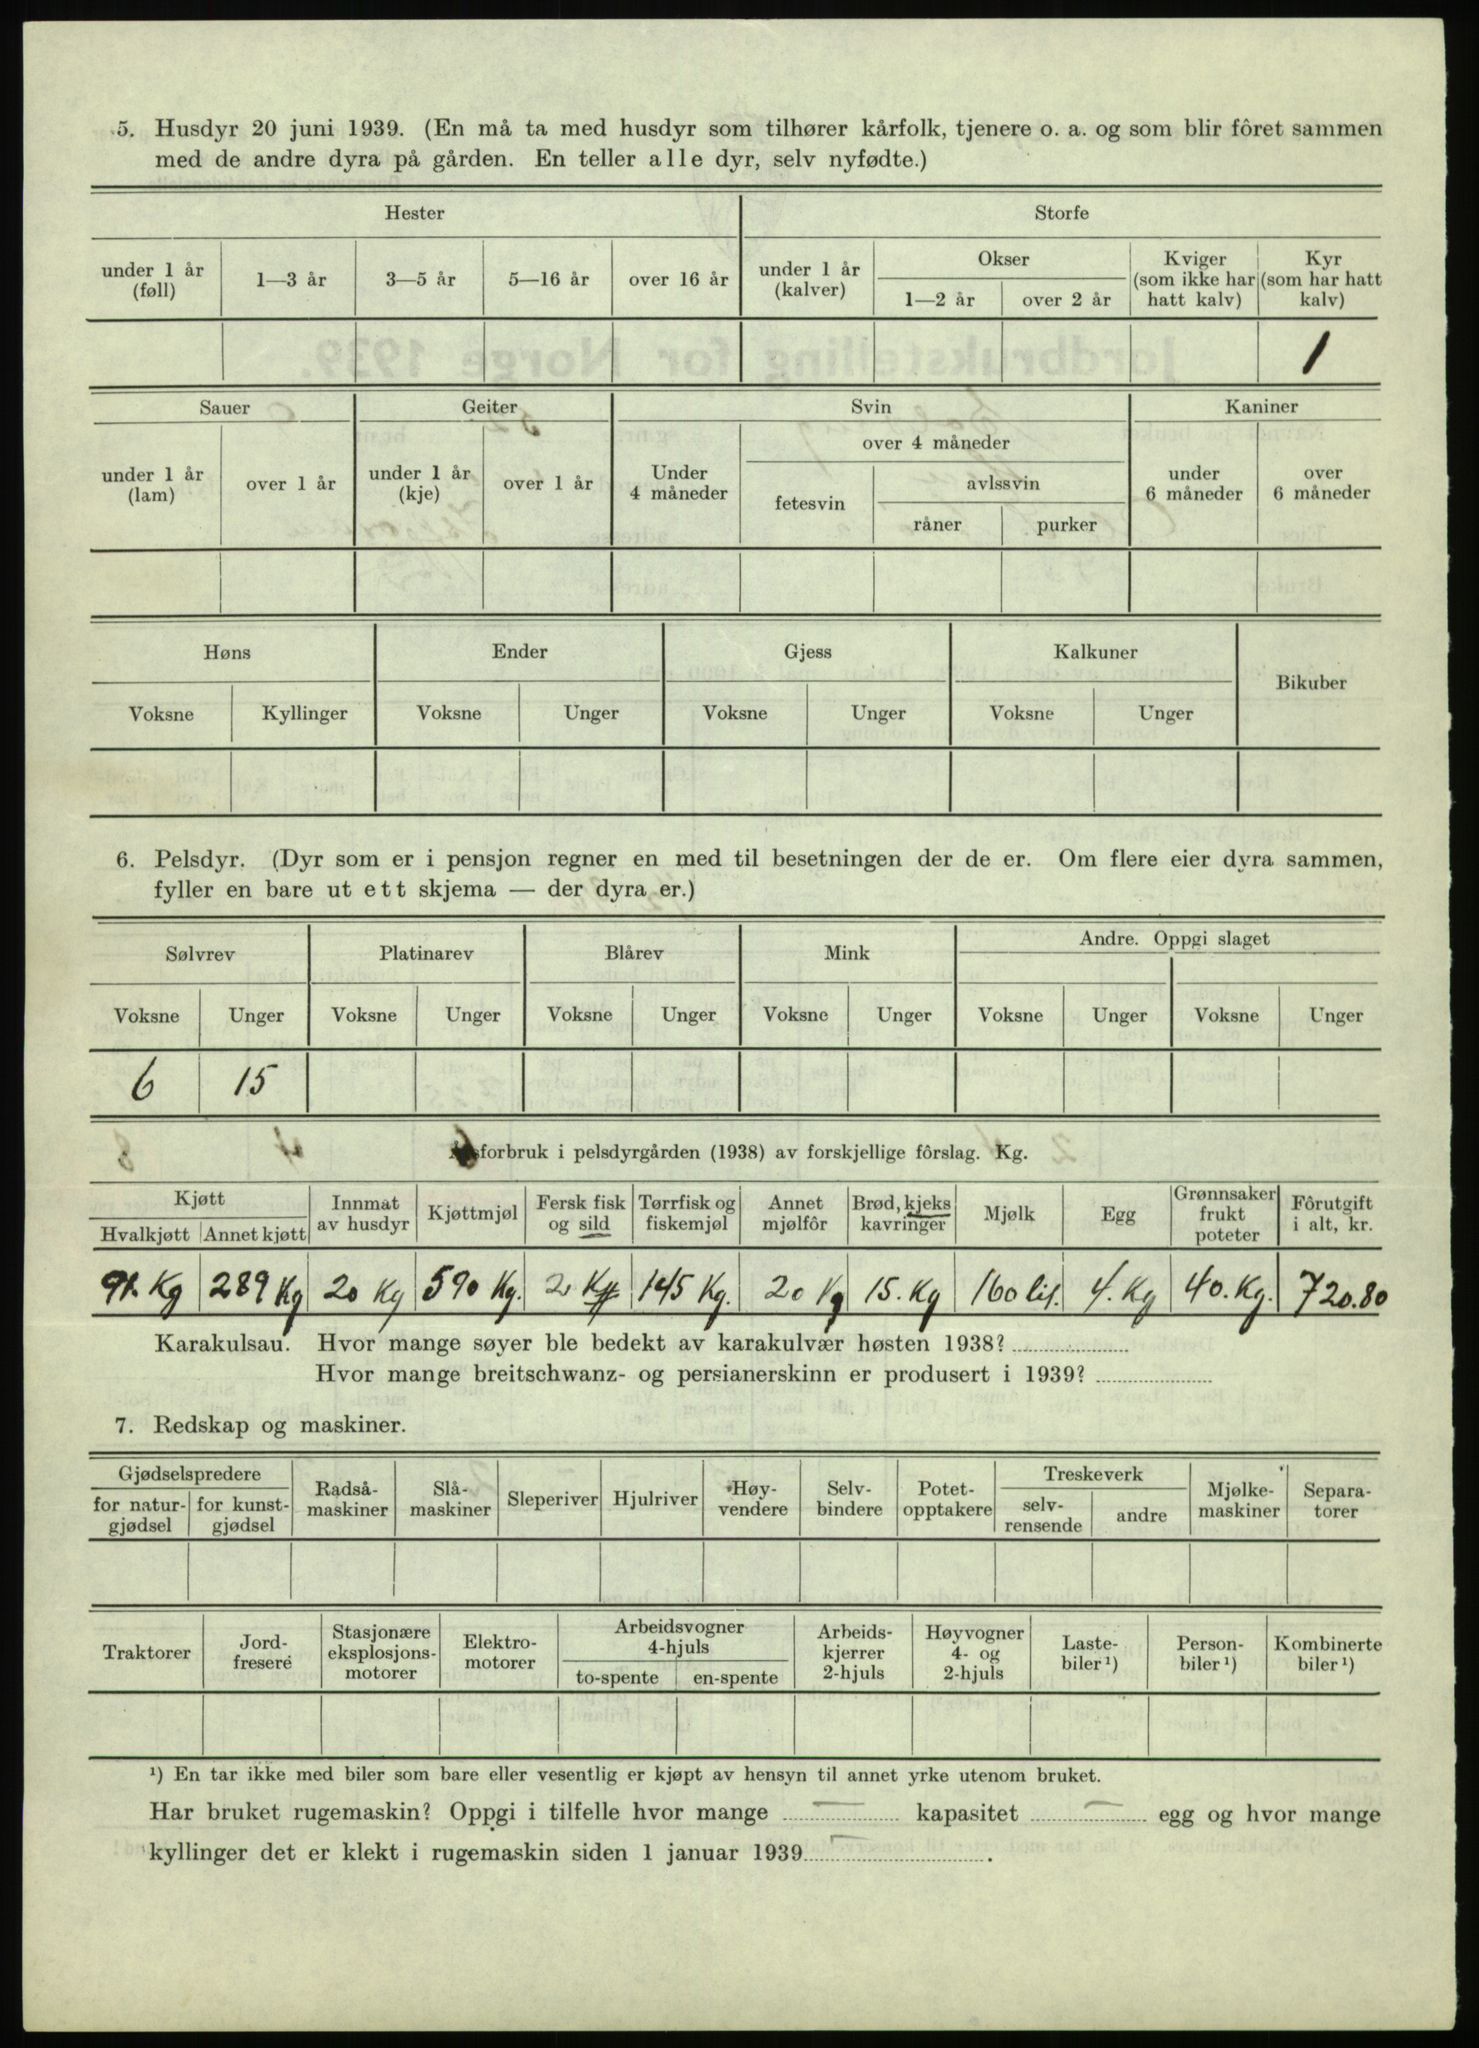 5. Husdyr 20 juni 1939. (En må ta med husdyr som tilhører kårfolk, tjenere o. a. og som blir fôret sammen
med de andre dyra på gården. En teller alle dyr, selv nyfødte.)
Hester Storfe
under 1 år (føll) 1—3 år 3—5 år 5—16 år over 16 år under 1 år (kalver) Okser 1—2 år over 2 år Kviger (som ikke har hatt kalv) Kyr (som har hatt kalv)
1
Sauer Geiter Svin Kaniner
under 1 år (lam) over 1 år under 1 år (kje) over 1 år Under 4 måneder over 4 måneder fetesvin avlssvin råner purker under 6 måneder over 6 måneder
Høns Ender Gjess Kalkuner Bikuber
Voksne Kyllinger Voksne Unger Voksne Unger Voksne Unger
6. Pelsdyr. (Dyr som er i pensjon regner en med til besetningen der de er. Om flere eier dyra sammen,
fyller en bare ut ett skjema — der dyra er.)
Sølvrev Platinarev Blårev Mink Andre. Oppgi slaget
Voksne Unger Voksne Unger Voksne Unger Voksne Unger Voksne Unger Voksne Unger
6 15
Årsforbruk i pelsdyrgården (1938) av forskjellige fôrslag. Kg.
Kjøtt Hvalkjøtt Annet kjøtt Innmat av husdyr Kjøttmjøl Fersk fisk og sild Tørrfisk og fiskemjøl Annet mjølfôr Brød, kjeks kavringer Mjølk Egg Grønnsaker frukt poteter Fôrutgift i alt, kr.
91. Kg 289 Kg 20 Kg 590 Kg. 2. Kg 145 Kg. 20 Kg 15. Kg 160 lit. 4. Kg 40. Kg. 720.80
Karakulsau. Hvor mange søyer ble bedekt av karakulvær høsten 1938?
Hvor mange breitschwanz- og persianerskinn er produsert i 1939?
7. Redskap og maskiner.
Gjødselspredere for natur-gjødsel for kunst-gjødsel Radså-maskiner Slå-maskiner Sleperiver Hjulriver Høy-vendere Selv-bindere Potet-opptakere Treskeverk selv-rensende andre Mjølke-maskiner Separa-torer
Traktorer Jord-freseré Stasjonære eksplosjons-motorer Elektro-motorer Arbeidsvogner 4-hjuls to-spente en-spente Arbeids-kjerrer 2-hjuls Høyvogner 4- og 2-hjuls Laste-biler ¹) Person-biler ¹) Kombinerte biler ¹)
¹) En tar ikke med biler som bare eller vesentlig er kjøpt av hensyn til annet yrke utenom bruket.
Har bruket rugemaskin? Oppgi i tilfelle hvor mange — kapasitet — egg og hvor mange
kyllinger det er klekt i rugemaskin siden 1 januar 1939 — .